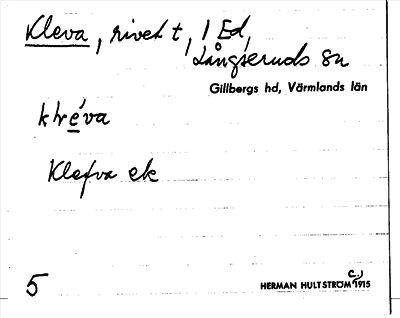 Kleva, rivet t, 1 Ed,
Långseruds sn
Gillbergs hd, Värmlands län
klréva
Klefva ek
5
HERMAN HULTSTRÖM c.) 1915